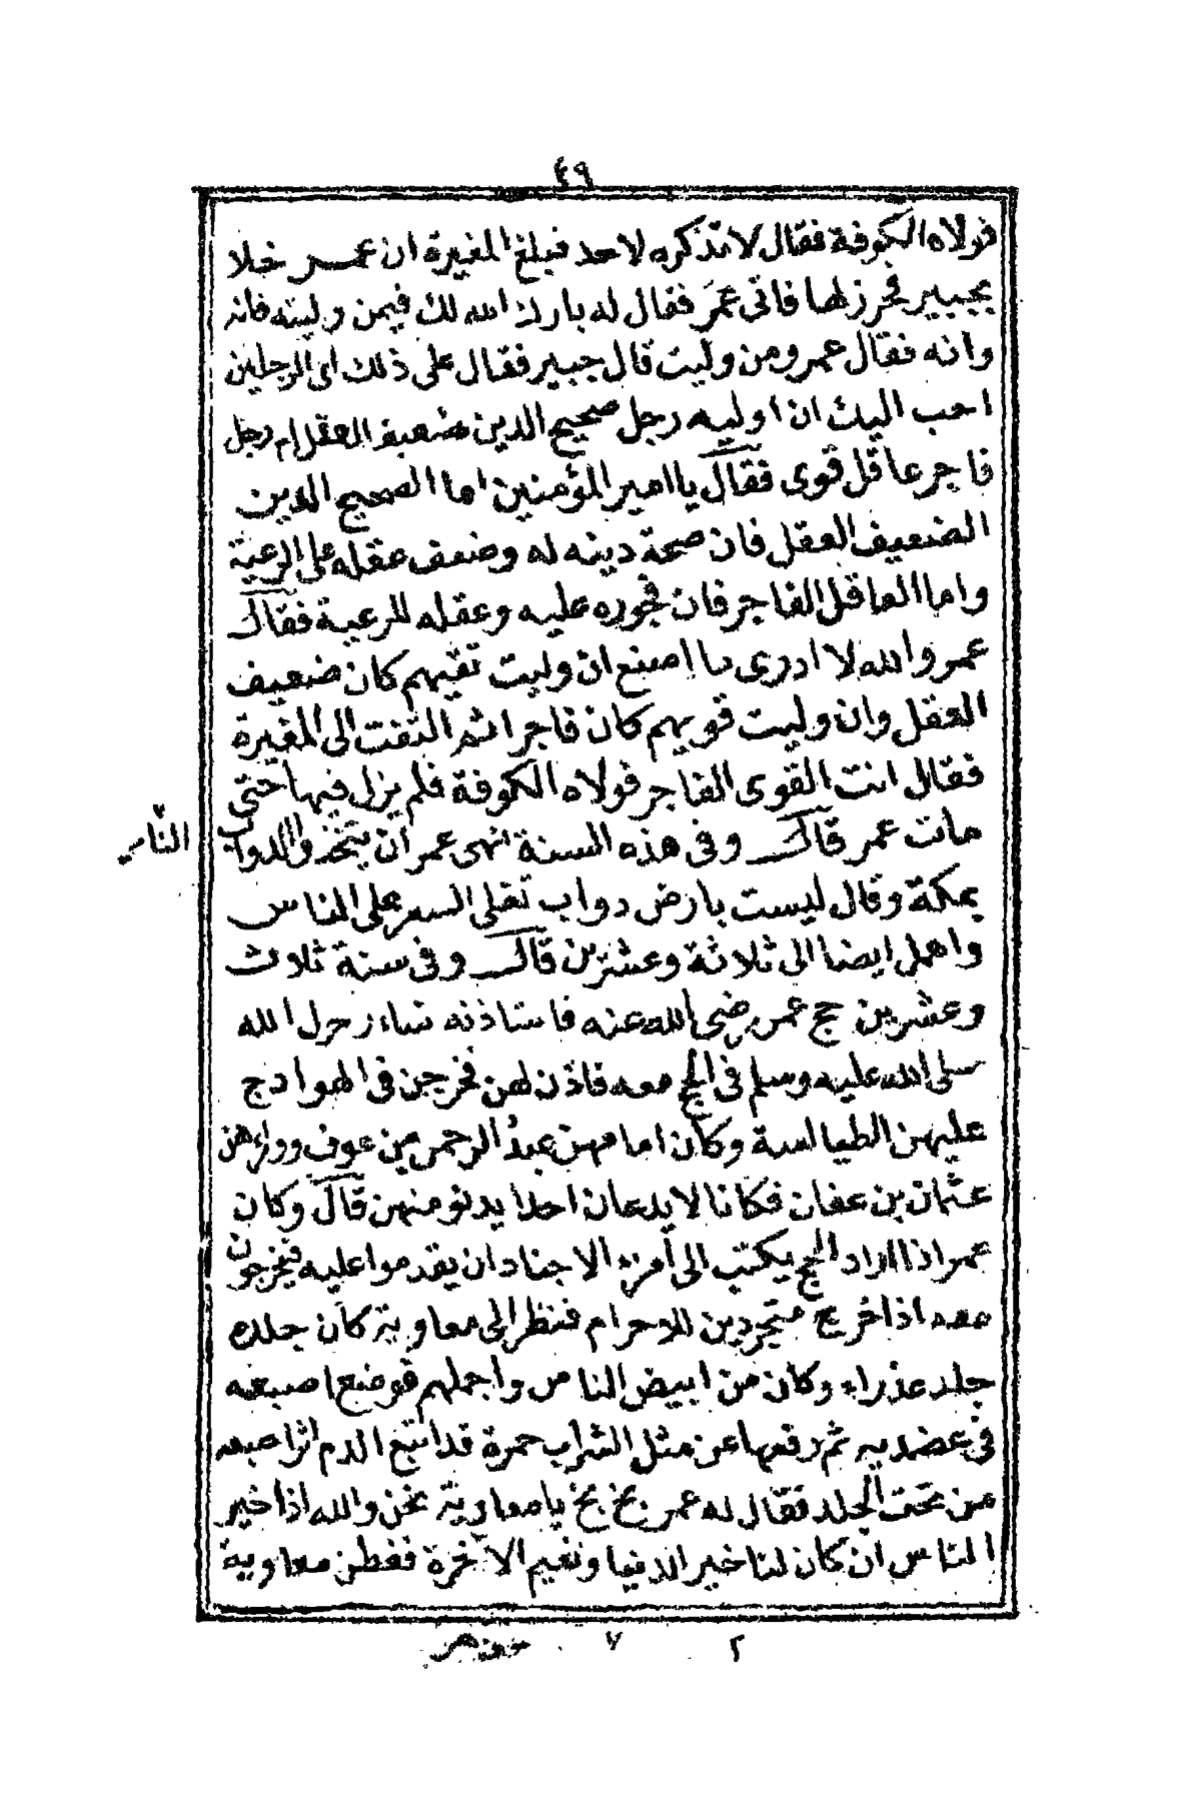 ٤٩
فولاه الكوفة فقال لا تذكره لاحد فبلغ المغيرة ان عمر خلا
بجبير فخرز لها فاتى عمر فقال له بارك الله لك فيمن وليته فانه
وانه فقال عمرو من وليت قال جبير فقال على ذلك اى الرجلين
احب اليك ان اوليه رجل صحيح الدين ضعيف العقل ام رجل
فاجر عاقل قوى فقال يا امير المؤمنين اما الصحيح الدين
الضعيف العقل فان صحة دينه له وضعف عقله على الرعية
واما العاقل الفاجر فان فجوره عليه وعقله للرعية فقال
عمر والله لا ادرى ما اصنع ان وليت تقيهم كان ضعيف
العقل وان وليت قويهم كان فاجرا ثم التفت الى المغيرة
فقال انت القوى الفاجر فولاه الكوفة فلم يزل فيها حتى
مات عمر قال وفى هذه السنة نهى عمر ان يتخذوا الدواب
الناس
بمكة وقال ليست بارض دواب تغلى السعر على الناس
واهمل ايضا الى ثلاثة وعشرين قال وفى سنة ثلاث
وعشرين حج عمر رضى الله عنه فاستاذنه نساء رسول الله
صلى الله عليه وسلم فى الحج معه فاذن لهن فخرجن فى الهوادج
عليهن الطيالسة وكان امامهن عبد الرحمن بن عوف ووراءهن
عثمان بن عفان فكانا لا يدعان احدا يدنو منهن قال وكان
عمر اذا اراد الحج يكتب الى امراء الاجناد ان يقدموا عليه فيخرجون
معه اذا خرج متجردين للاحرام فنظر الى معاوية كان جلده
جلد عذراء وكان من ابيض الناس واجملهم فوضع اصبعه
فى عضديه ثم رفعها عن مثل الشراب حمرة قد اتبع الدم اثر اصبعه
من تحت الجلد فقال له عمر بخ بخ يا معاوية نحن والله اذا خير
الناس ان كان لنا خير الدنيا ونعيم الآخرة ففطن معاوية
٢ ٧